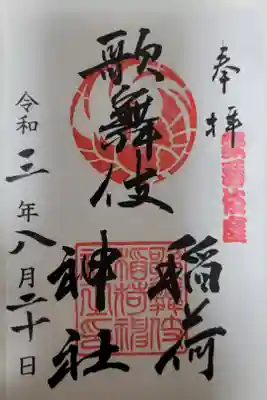 奉拝
歌舞伎
稲荷
神社
令和三年八月二十日
歌舞伎座
歌舞伎
稲荷神
社之印